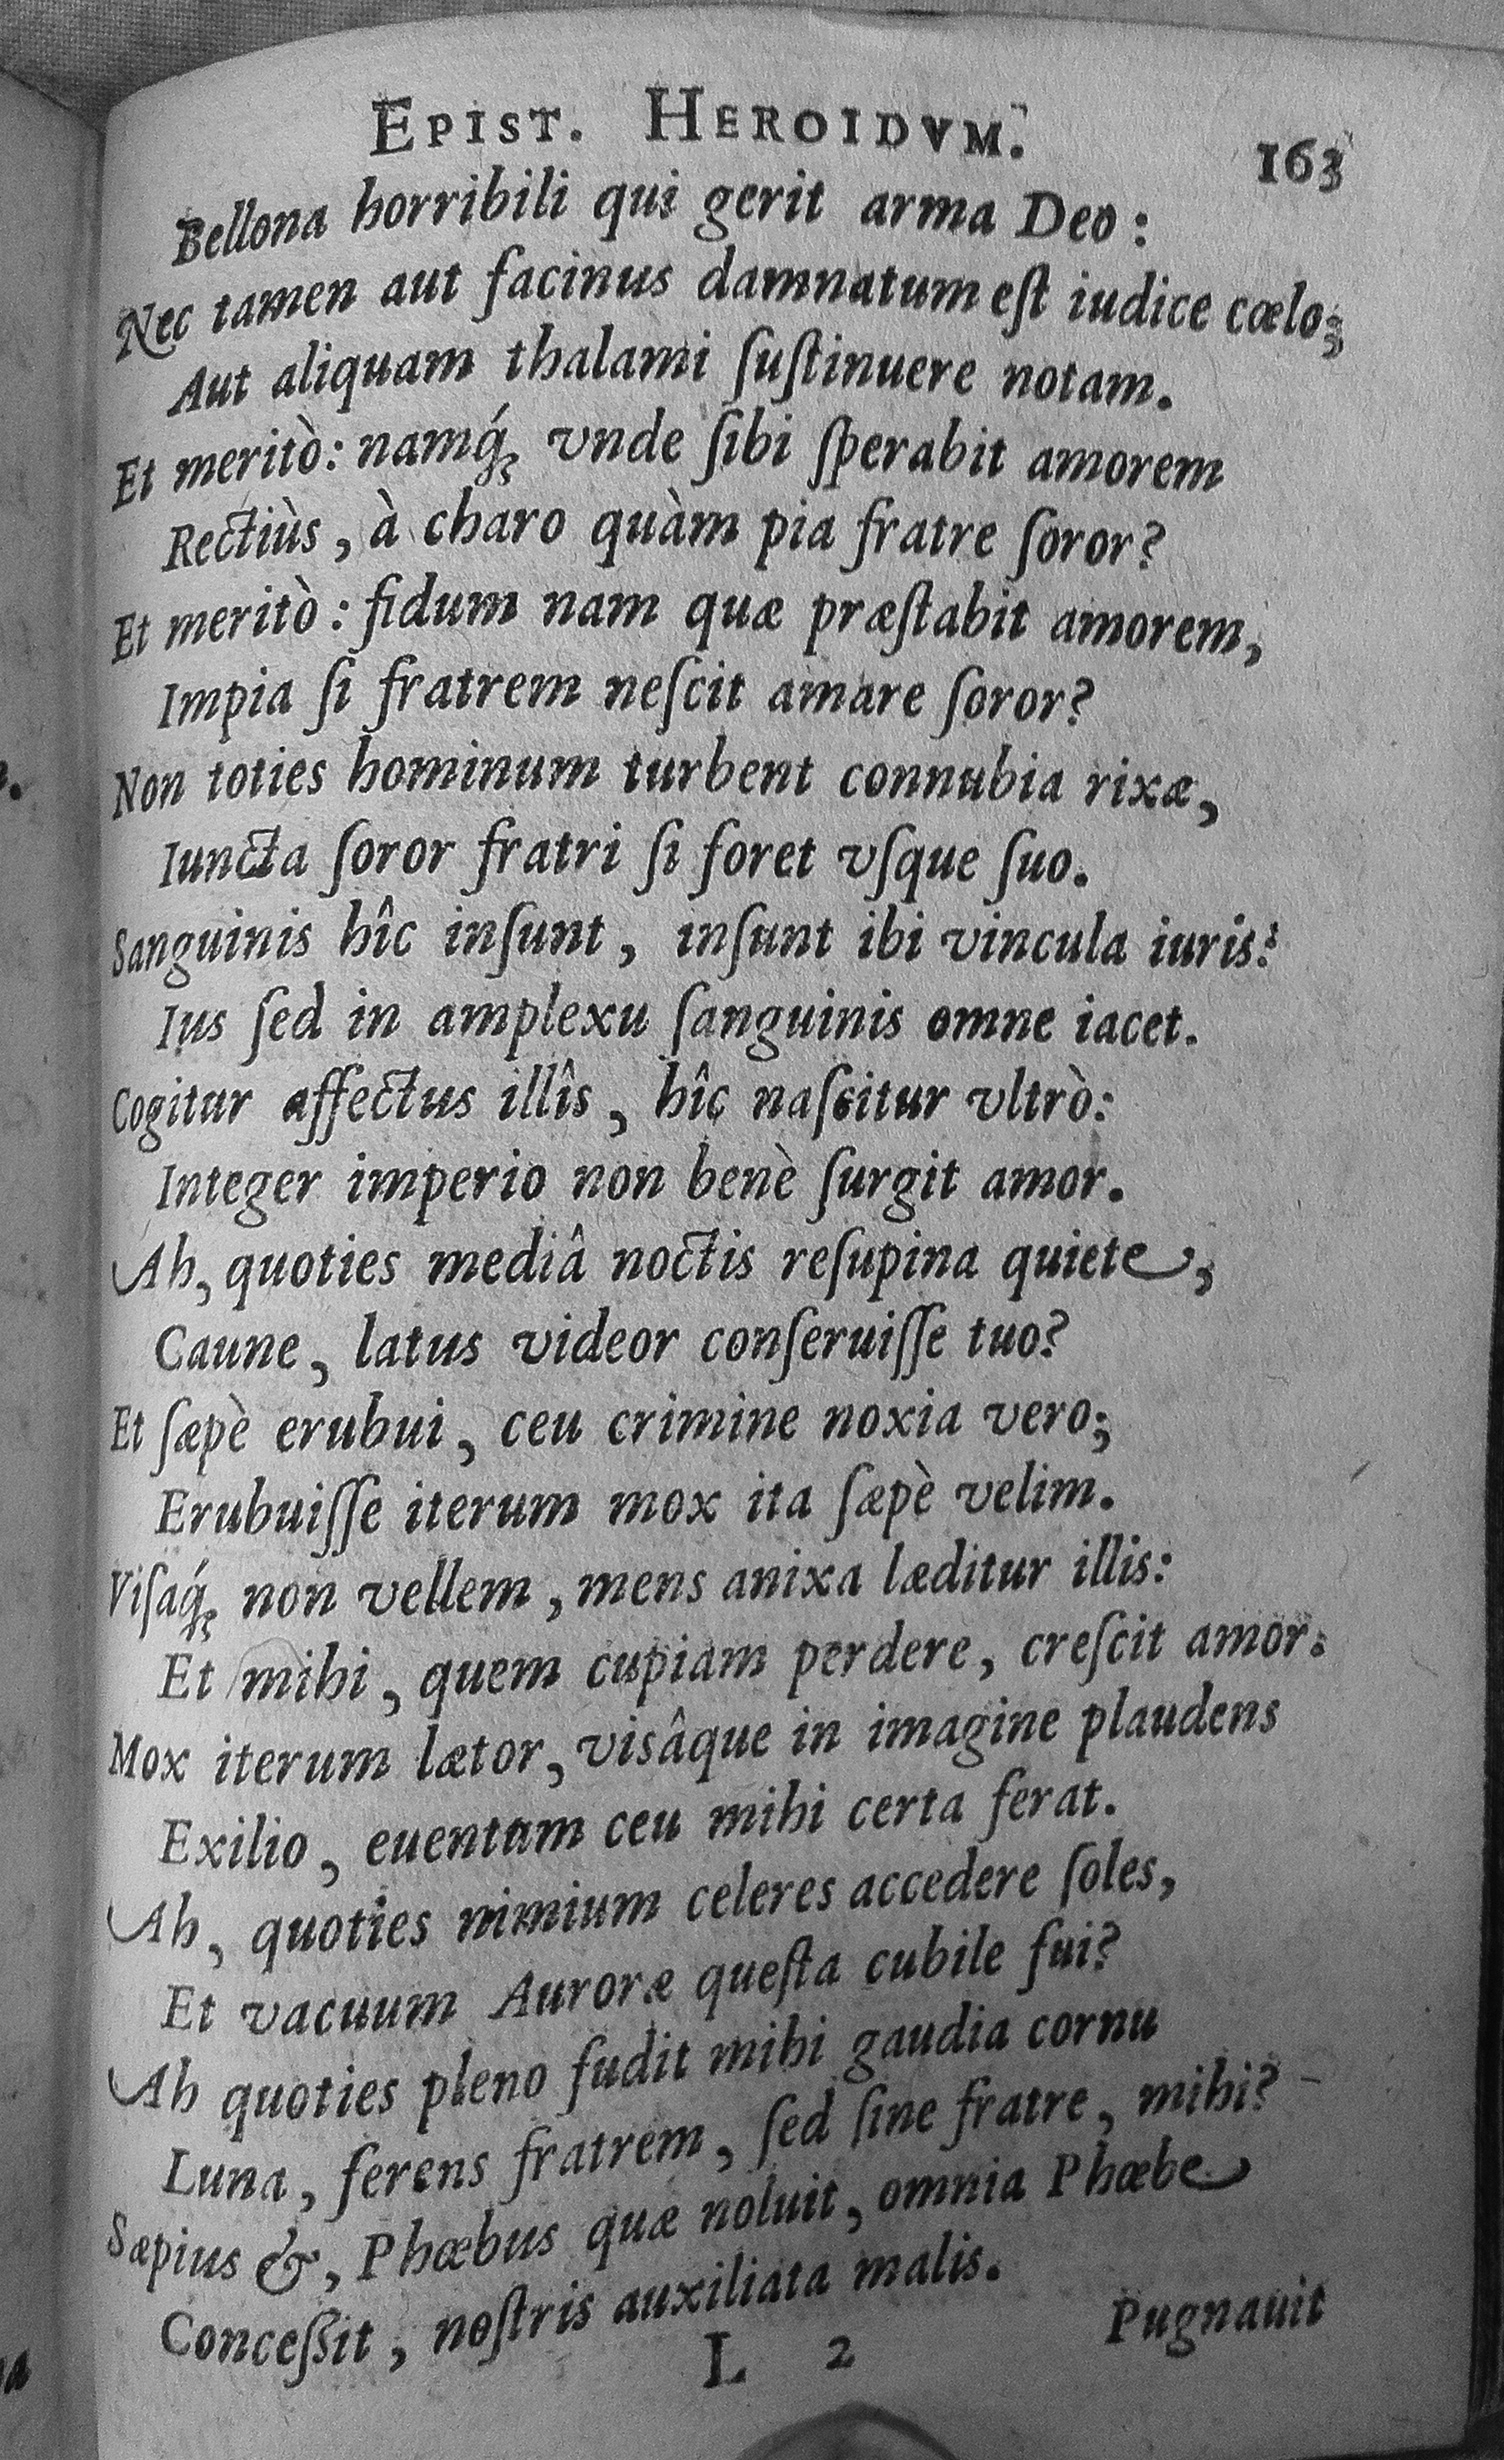 EPIST. HEROIDVM. 163
Bellona horribili qui gerit arma Deo:
Nec tamen aut facinus damnatum eſt iudice cœlo;
Aut aliquam thalami ſuſtinuere notam.
Et meritò: namq́; vnde ſibi ſperabit amorem
Rectiùs, à charo quàm pia fratre ſoror?
Et meritò: fidum nam quæ præſtabit amorem,
Impia ſi fratrem neſcit amare ſoror?
Non toties hominum turbent connubia rixæ,
Iuncta ſoror fratri ſi foret vſque ſuo.
Sanguinis hîc inſunt, inſunt ibi vincula iuris:
Ius ſed in amplexu ſanguinis omne iacet.
Cogitur affectus illîs, hîc naſcitur vltrò:
Integer imperio non benè ſurgit amor.
Ah, quoties mediâ noctis reſupina quiete,
Caune, latus videor conſeruiſſe tuo?
Et ſæpè erubui, ceu crimine noxia vero;
Erubuiſſe iterum mox ita ſæpè velim.
Viſaq́; non vellem, mens anixa læditur illis:
Et mihi, quem cupiam perdere, creſcit amor.
Mox iterum lætor, visâque in imagine plaudens
Exilio, euentum ceu mihi certa ferat.
Ah, quoties nimium celeres accedere ſoles,
Et vacuum Auroræ queſta cubile fui?
Ah quoties pleno fudit mihi gaudia cornu
Luna, ferens fratrem, ſed ſine fratre, mihi?
Sæpius &, Phœbus quæ noluit, omnia Phœbe
Conceßit, noſtris auxiliata malis.
L 2 Pugnauit